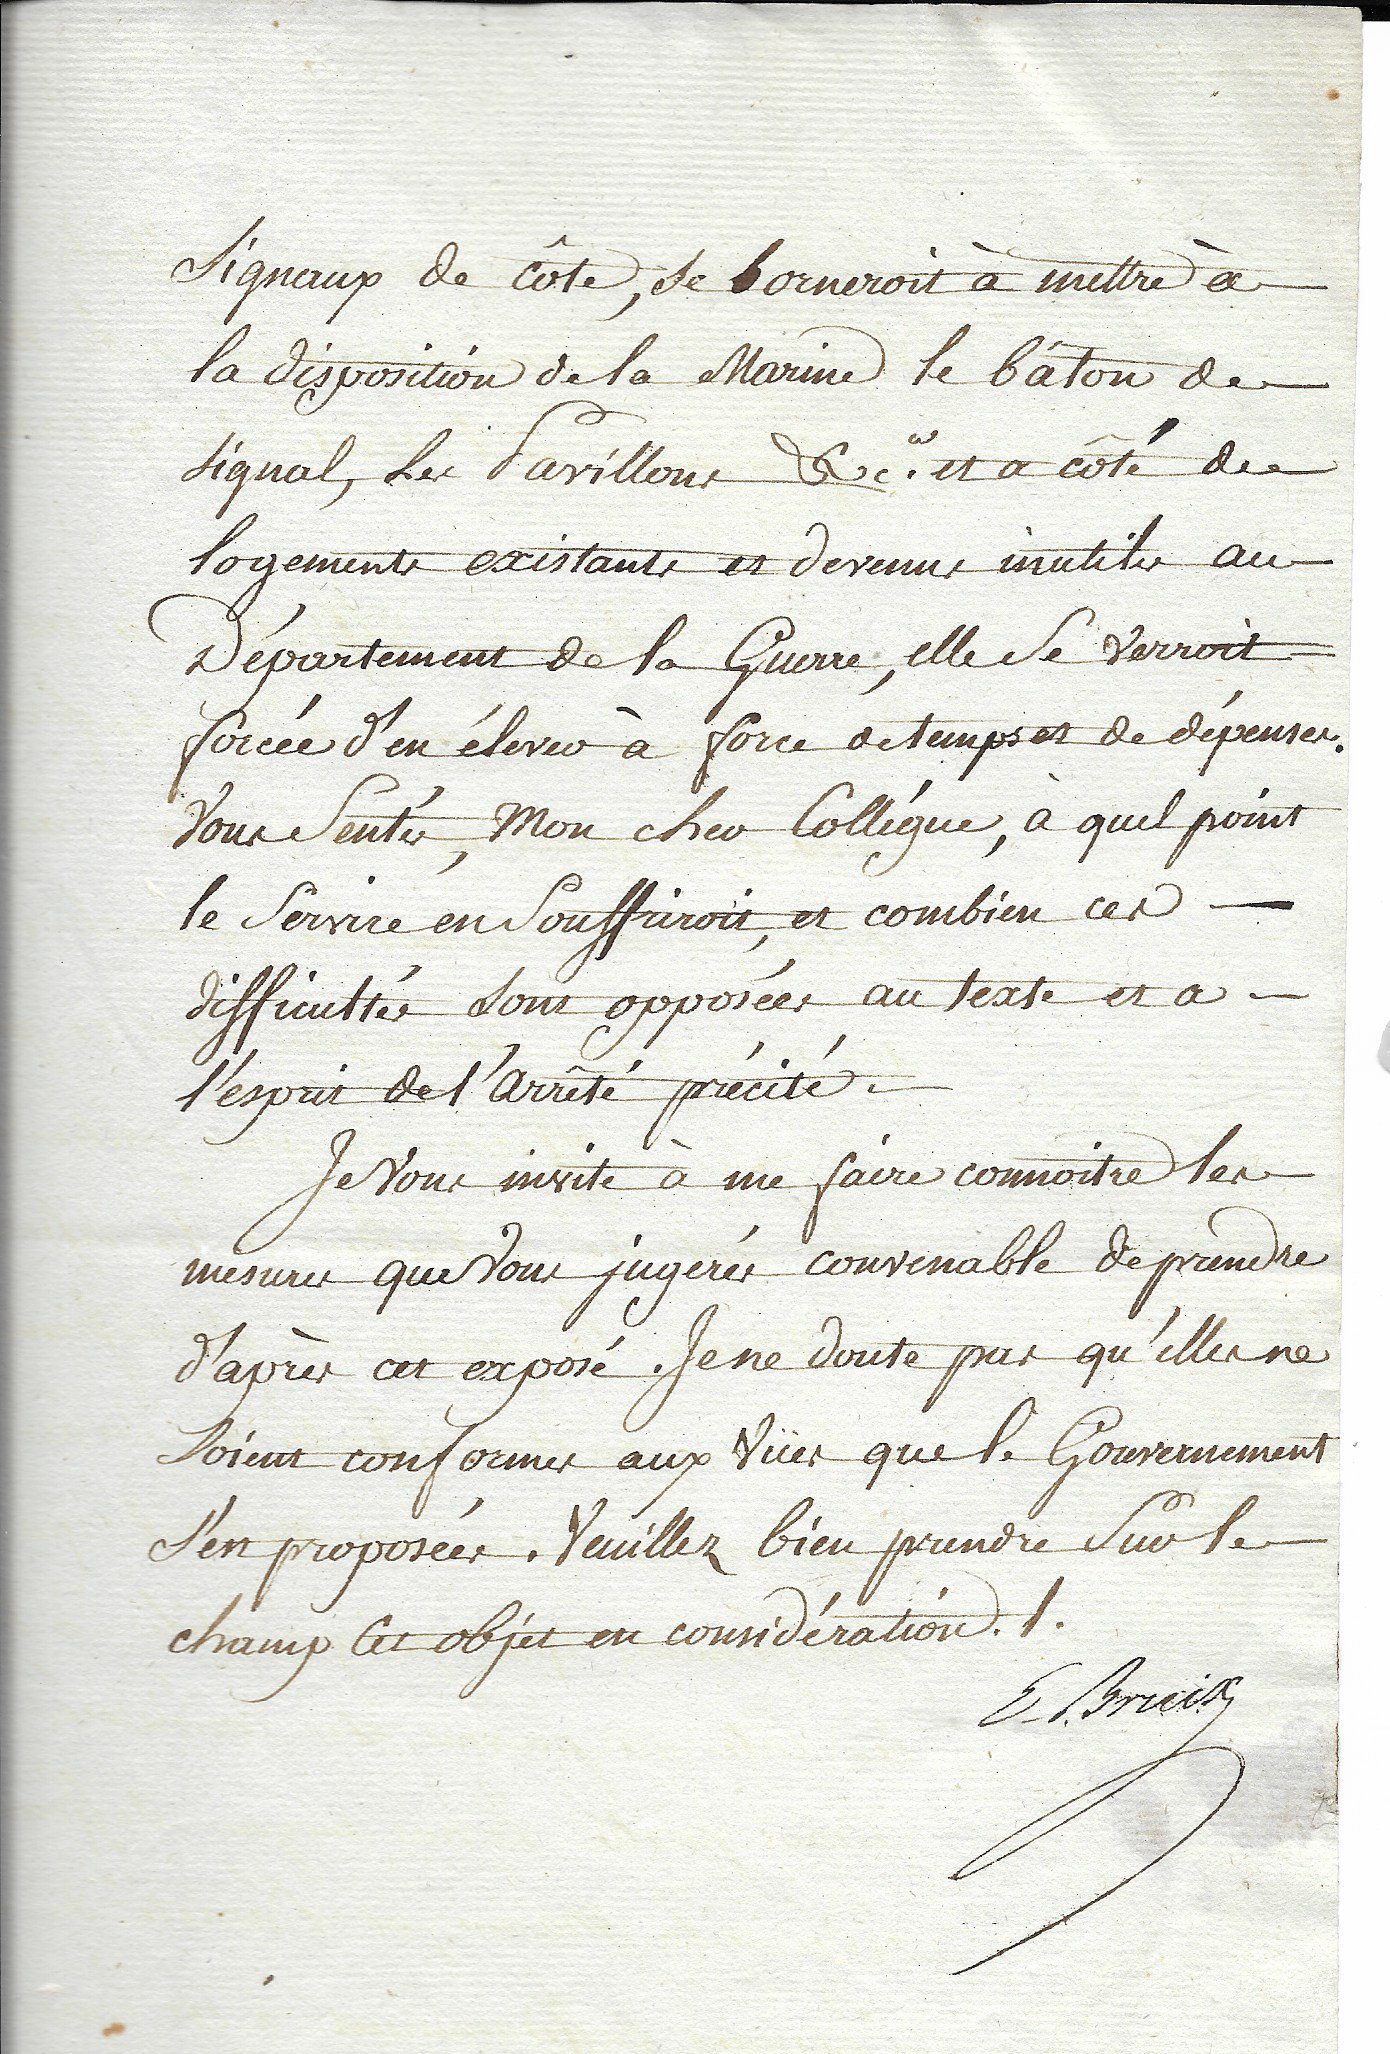 Signaux de côte, se borneroit à mettre à
la disposition de la Marine le bâton de
signal, les Pavillons &c.a et a côté de
logements existants et devenus inutiles au
Département de la Guerre, elle se verroit
forcée d'en élever à force de temps et de dépenses.
Vous Sentés, Mon cher Collégue, à quel point
le Service en Souffriroit, et combien ces
difficultés sont opposées au texte et a
l'esprit de l'Arrêté précité.
Je Vous invite à me faire connoitre les
mesures que Vous jugerés convenable de prendre
d'après cet exposé. Je ne doute pas qu'elles ne
Soient conformes aux Vües que le Gouvernement
s'en proposées. Veuillez bien prendre Sur le
champ Cet objet en considération. /.
E. Bruix